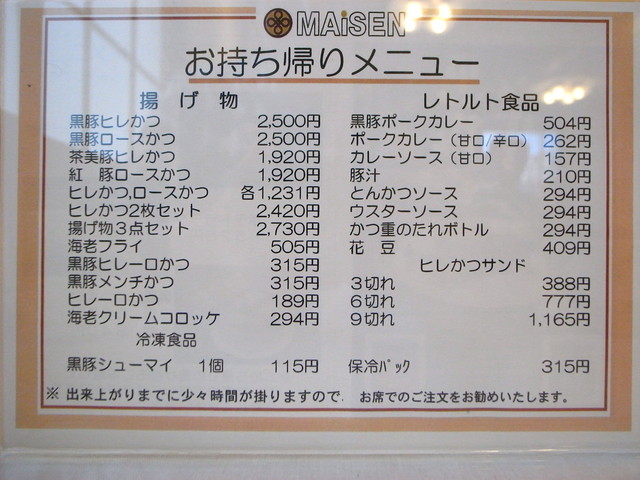 MAiSEN
お持ち帰りメニュー
揚げ物
黒豚ヒレかつ 2,500円
黒豚ロースかつ 2,500円
茶美豚ヒレかつ 1,920円
紅 豚ロースかつ 1,920円
ヒレかつ,ロースかつ 各1,231円
ヒレかつ2枚セット 2,420円
揚げ物3点セット 2,730円
海老フライ 505円
黒豚ヒレ一口かつ 315円
黒豚メンチかつ 315円
ヒレ一口かつ 189円
海老クリームコロッケ 294円
冷凍食品
黒豚シューマイ 1個 115円
レトルト食品
黒豚ポークカレー 504円
ポークカレー(甘口/辛口) 262円
カレーソース(甘口) 157円
豚汁 210円
とんかつソース 294円
ウスターソース 294円
かつ重のたれボトル 294円
花 豆 409円
ヒレかつサンド
3切れ 388円
6切れ 777円
9切れ 1,165円
保冷パック 315円
※ 出来上がりまでに少々時間が掛りますので、 お席でのご注文をお勧めいたします。